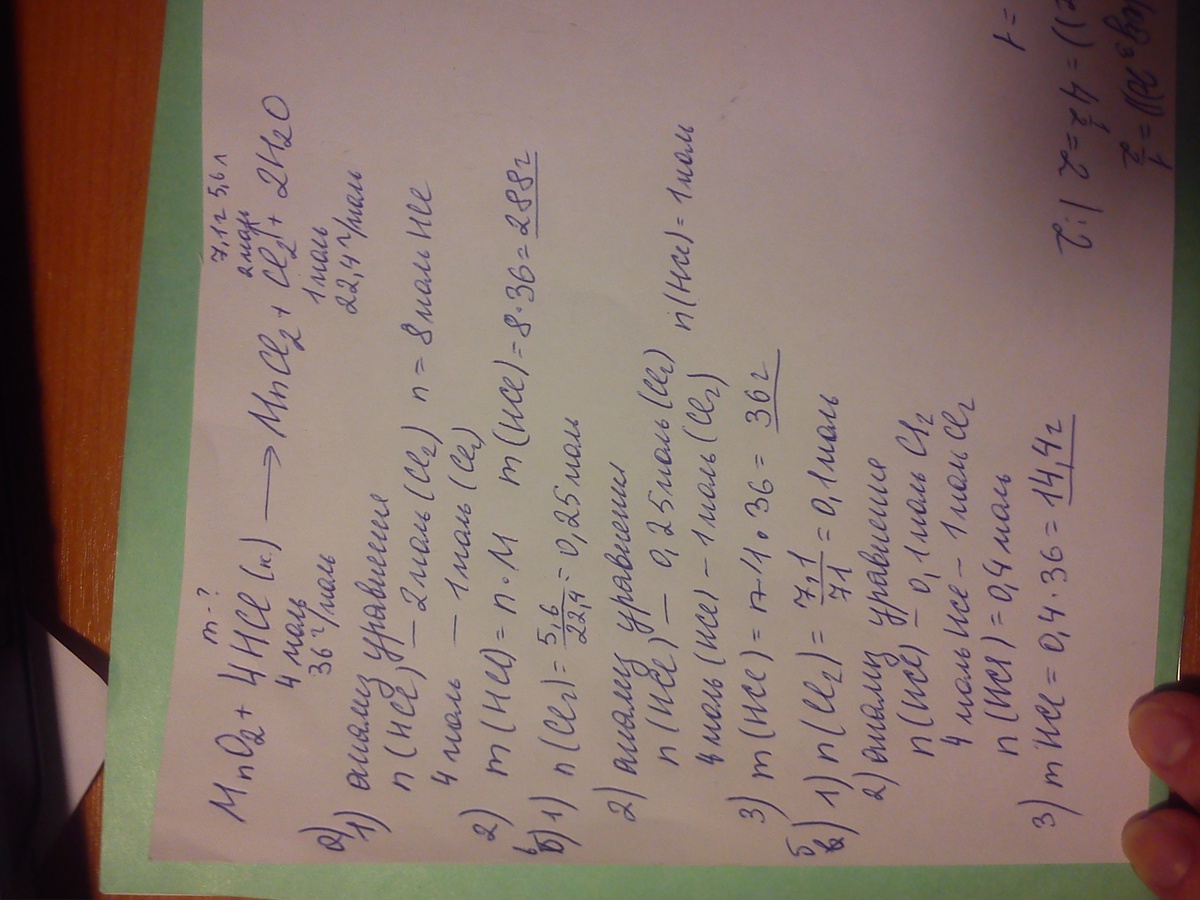 m-? 7,1г 5,6 л
2 моль
MnO2 + 4HCl (к.) ⟶ MnCl2 + Cl2 + 2H2O
4 моль 1 моль
36 г/моль 22,4 г/моль
а)
1) анализ уравнения
n (HCl) — 2 моль (Cl2) n = 8 моль HCl
4 моль — 1 моль (Cl2)
2) m (HCl) = n · M m (HCl) = 8 · 36 = 288г
в) 1) n (Cl2) = 5,6/22,4 = 0,25 моль
2) анализ уравнения
n (HCl) — 0,25 моль (Cl2)
4 моль (HCl) — 1 моль (Cl2) n (HCl) = 1 моль
3) m (HCl) = n · M · 36 = 36 г
б) 1) n (Cl2) = 7,1/71 = 0,1 моль
2) анализ уравнения
n (HCl) — 0,1 моль Cl2
4 моль HCl — 1 моль Cl2
n (HCl) = 0,4 моль
3) m HCl = 0,4 · 36 = 14,4г